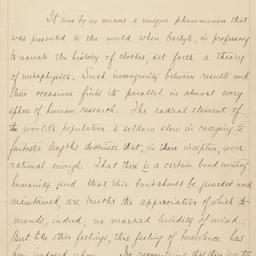 It was by no means a unique phenomenon that
was presented to the world, when Carlyle, in professing
to narrate the history of clothes, set forth a theory
of metaphysics. Such incongruity between results and
their occasions finds its parallel in almost every
sphere of human research. The radical element of
the world's population is seldom slow in carrying to
fantastic lengths doctrines that, in their inception, were
rational enough. That there is a certain bond uniting
humanity and that this bond should be guarded and
maintained, are truths the appreciation of which de-
mands, indeed, no marked lucidity of mind.
But like other feelings, this feeling of benevolence has
been imposed upon.